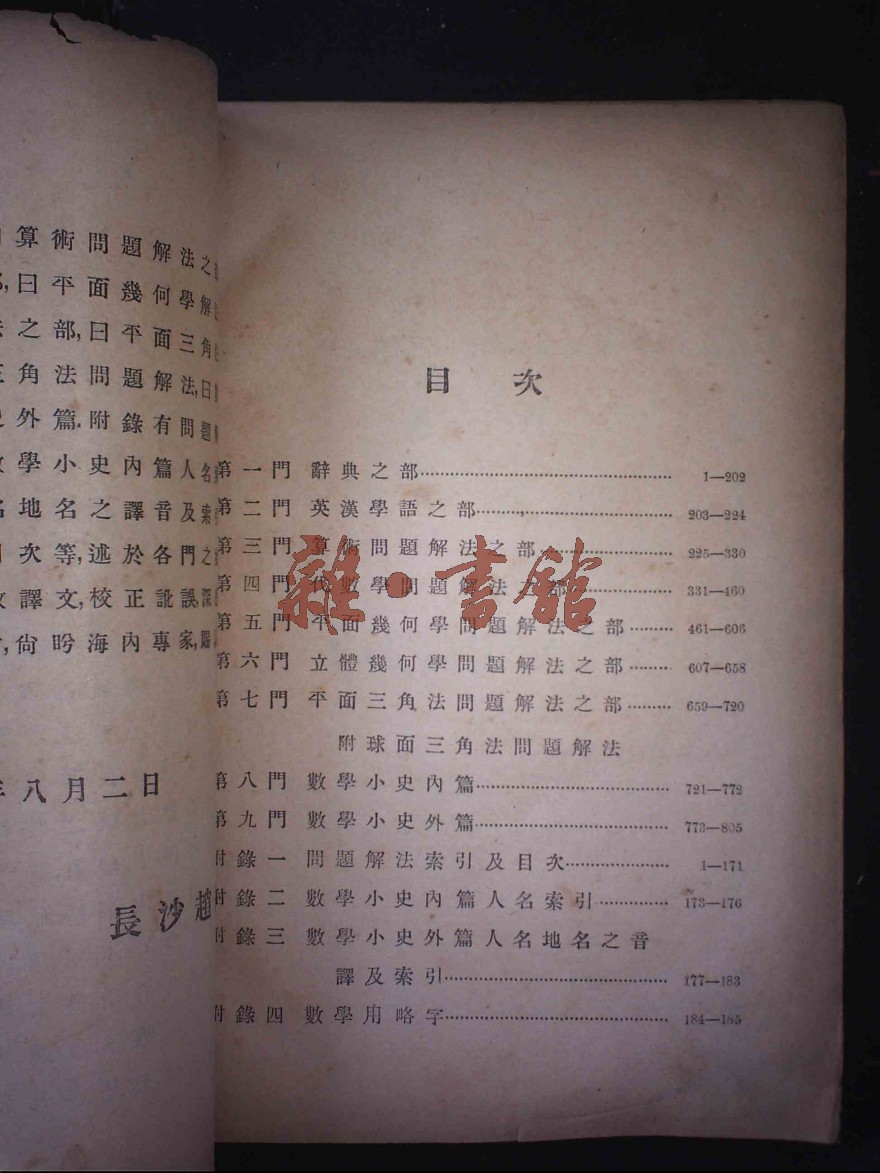 算術問題解法之
曰平面幾何學解
之部,曰平面三角
角法問題解法,曰
外篇.附錄有問題
學小史內篇人名
地名之譯音及索
次等,述於各門之
譯文,校正訛誤,深
,尙盼海內專家,賜
八月二日
長沙趙
目次
第一門 辭典之部 1—202
第二門 英漢學語之部 203—224
第三門 算術問題解法之部 225—330
第四門 代數學問題解法之部 331—460
第五門 平面幾何學問題解法之部 461—606
第六門 立體幾何學問題解法之部 607—658
第七門 平面三角法問題解法之部 659—720
附球面三角法問題解法
第八門 數學小史內篇 721—772
第九門 數學小史外篇 773—805
附錄一 問題解法索引及目次 1—171
附錄二 數學小史內篇人名索引 173—176
附錄三 數學小史外篇人名地名之音
譯及索引 177—183
附錄四 數學用略字 184—185
雜·書館